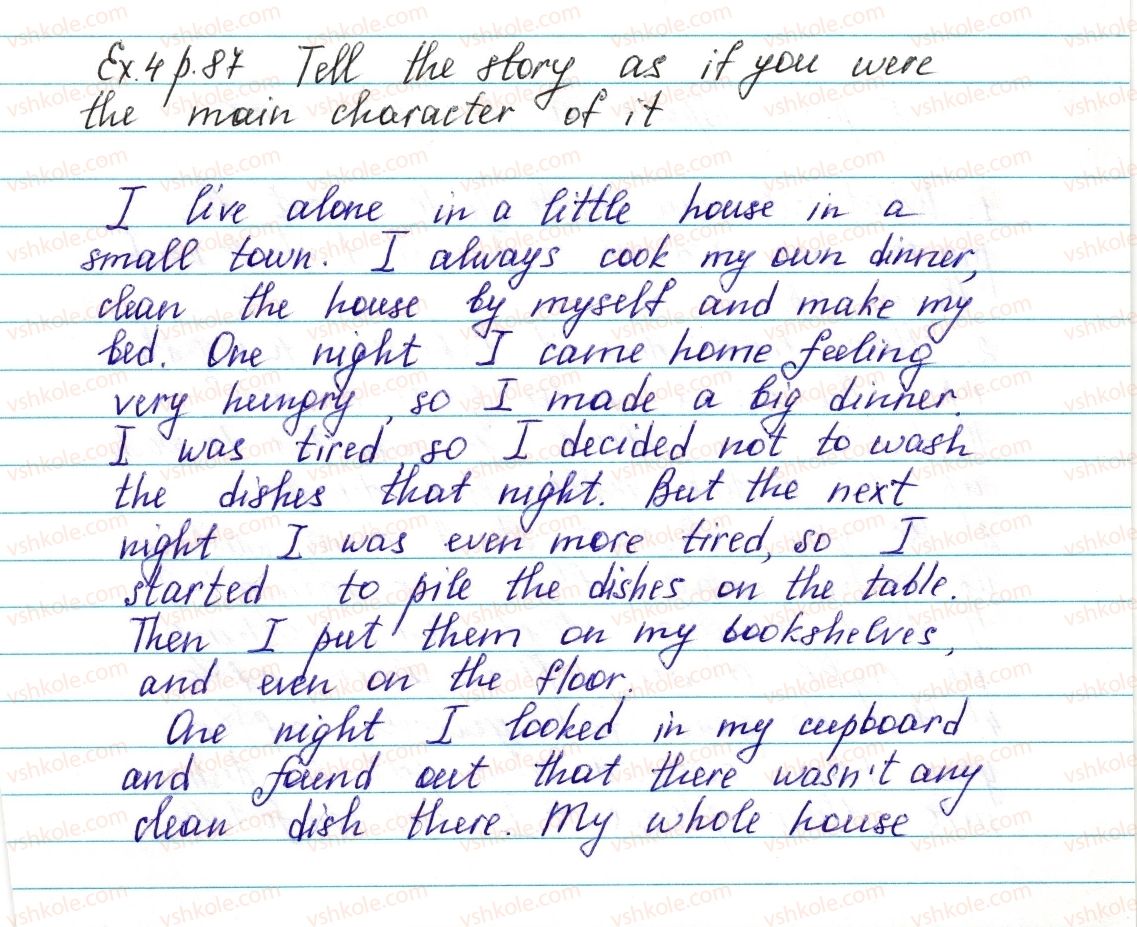 Ex.4 p.87 Tell the story as if you were
the main character of it
I live alone in a little house in a
small town. I always cook my own dinner,
clean the house by myself and make my
bed. One night I came home feeling
very hungry, so I made a big dinner.
I was tired, so I decided not to wash
the dishes that night. But the next
night I was even more tired, so I
started to pile the dishes on the table.
Then I put them on my bookshelves,
and even on the floor.
One night I looked in my cupboard
and found out that there wasn't any
clean dish there. My whole house
vshkole.com